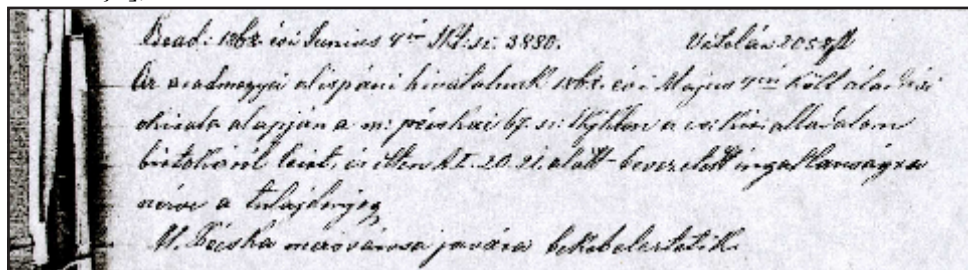 Bead: 1868. évi Junius 4én 3880. Vételár 2058 ft
Az aradmegyei alispáni hivatalnak 1868. évi Május 4én költ
okirata alapján a m: pécskai 67. sz: a cs: kir: álladalom
birtokául leirt, és itten A I. 20. 21. alatt bevezetett ingatlanságra
nézve a tulajdonjog
M. Pécska mezővárosa javára bekebeleztetik.